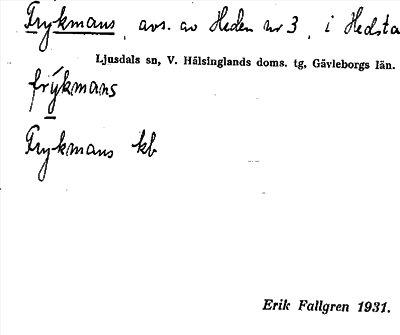 Frykmans, avs. av Heden nr 3, i Hedsta
Ljusdals sn, V. Hälsinglands doms. tg, Gävleborgs län.
frýkmans
Frykmans kb
Erik Fallgren 1931.